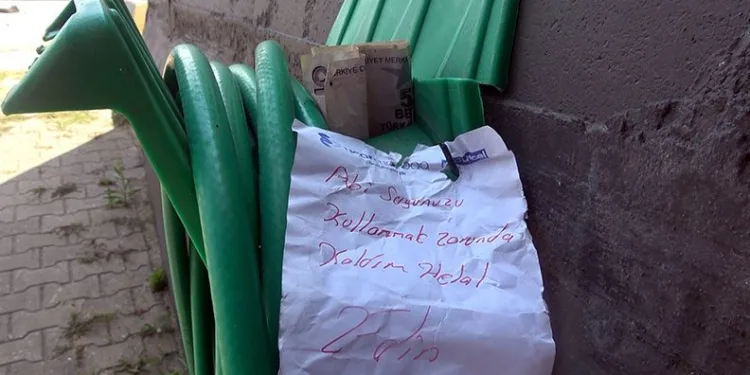 TÜRKİYE C
İYET MERKE
5
BE
TÜRK
Abi Suyunuzu
Kullanmak Zorunda
Kaldım Helal
Edin